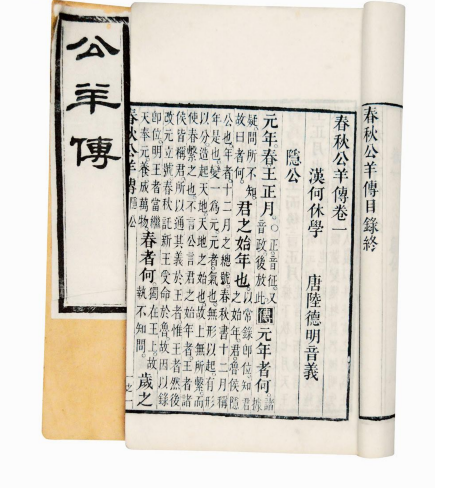 春秋公羊傳目錄終
春秋公羊傳卷一
漢何休學 唐陸德明音義
隱公
元年春王正月○正音征又音政後放此傳元年者何諸據
疑問所不知故曰者何君之始年也以常錄即位知君之始年君魯侯隱
公也年者十二月之總號春秋書十二月稱
年是也變一為元元者氣也無形以起有形
以分造起天地天地之始也故上無所繫而
使春繫之也不言公言君之始年者王者諸
侯皆稱君所以通其義於王者惟王者然後
改元立號春秋託新王受命於魯故因以錄
即位明王者當繼天奉元養成萬物春者何獨在王上故執不知問歲之
春秋公羊傳 隱公
公羊傳